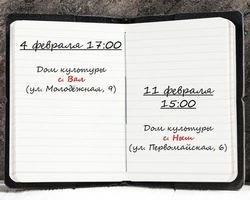 4 февраля 17:00
Дом культуры
с. Вал
(ул. Молодёжная, 9)
11 февраля
15:00
Дом культуры
с. Ныш
(ул. Первомайская, 6)